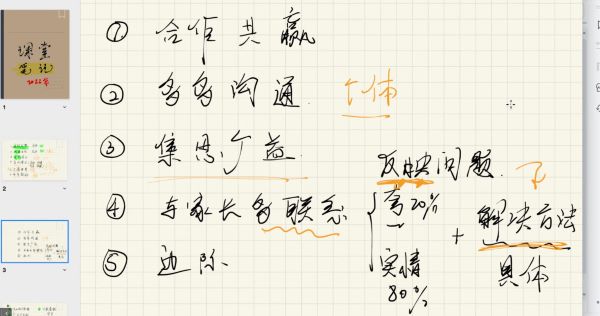 课堂
笔记
1
2
3
① 合作共赢
② 多多沟通. 个体
③ 集思广益.
④ 与家长多联系
⑤ 边际
反映问题.
夸20%
+ 解决方法
实情
80%
具体